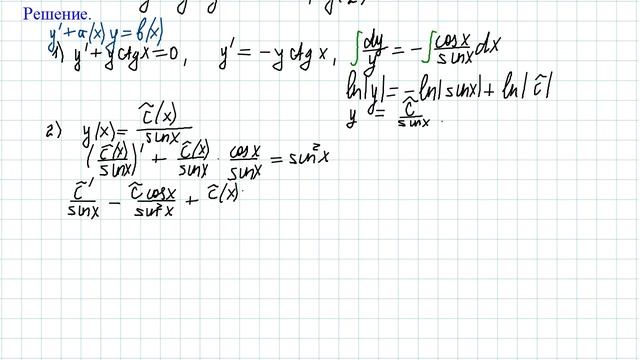 Решение.
y' + a(x)y = b(x)
1) y' + y ctg x = 0, y' = -y ctg x, ∫ dy/y = -∫ cos x/sin x dx
ln|y| = -ln|sin x| + ln|C̃|
y = C̃/sin x.
2) y(x) = C̃(x)/sin x
(C̃(x)/sin x)' + C̃(x)/sin x · cos x/sin x = sin²x
C̃'/sin x - C̃ cos x/sin²x + C̃(x)·